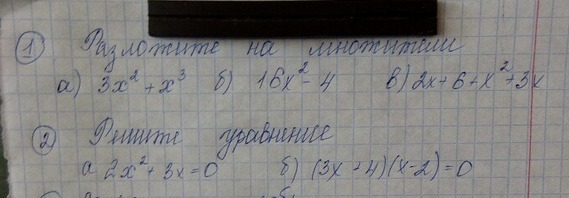 1 Разложите на множители
а) 3x² + x³ б) 16x² - 4 в) 2x + 6 + x² + 3x
2 Решите уравнение
а 2x² + 3x = 0 б) (3x - 4)(x - 2) = 0